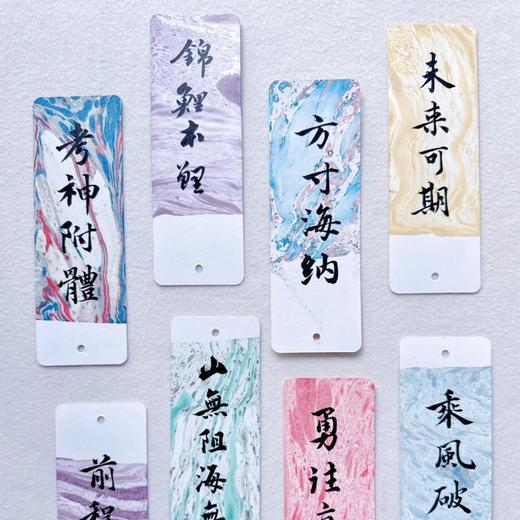 考神附體
錦鯉本鯉
方寸海纳
未来可期
前程
山無阻海無
勇往直
乘風破